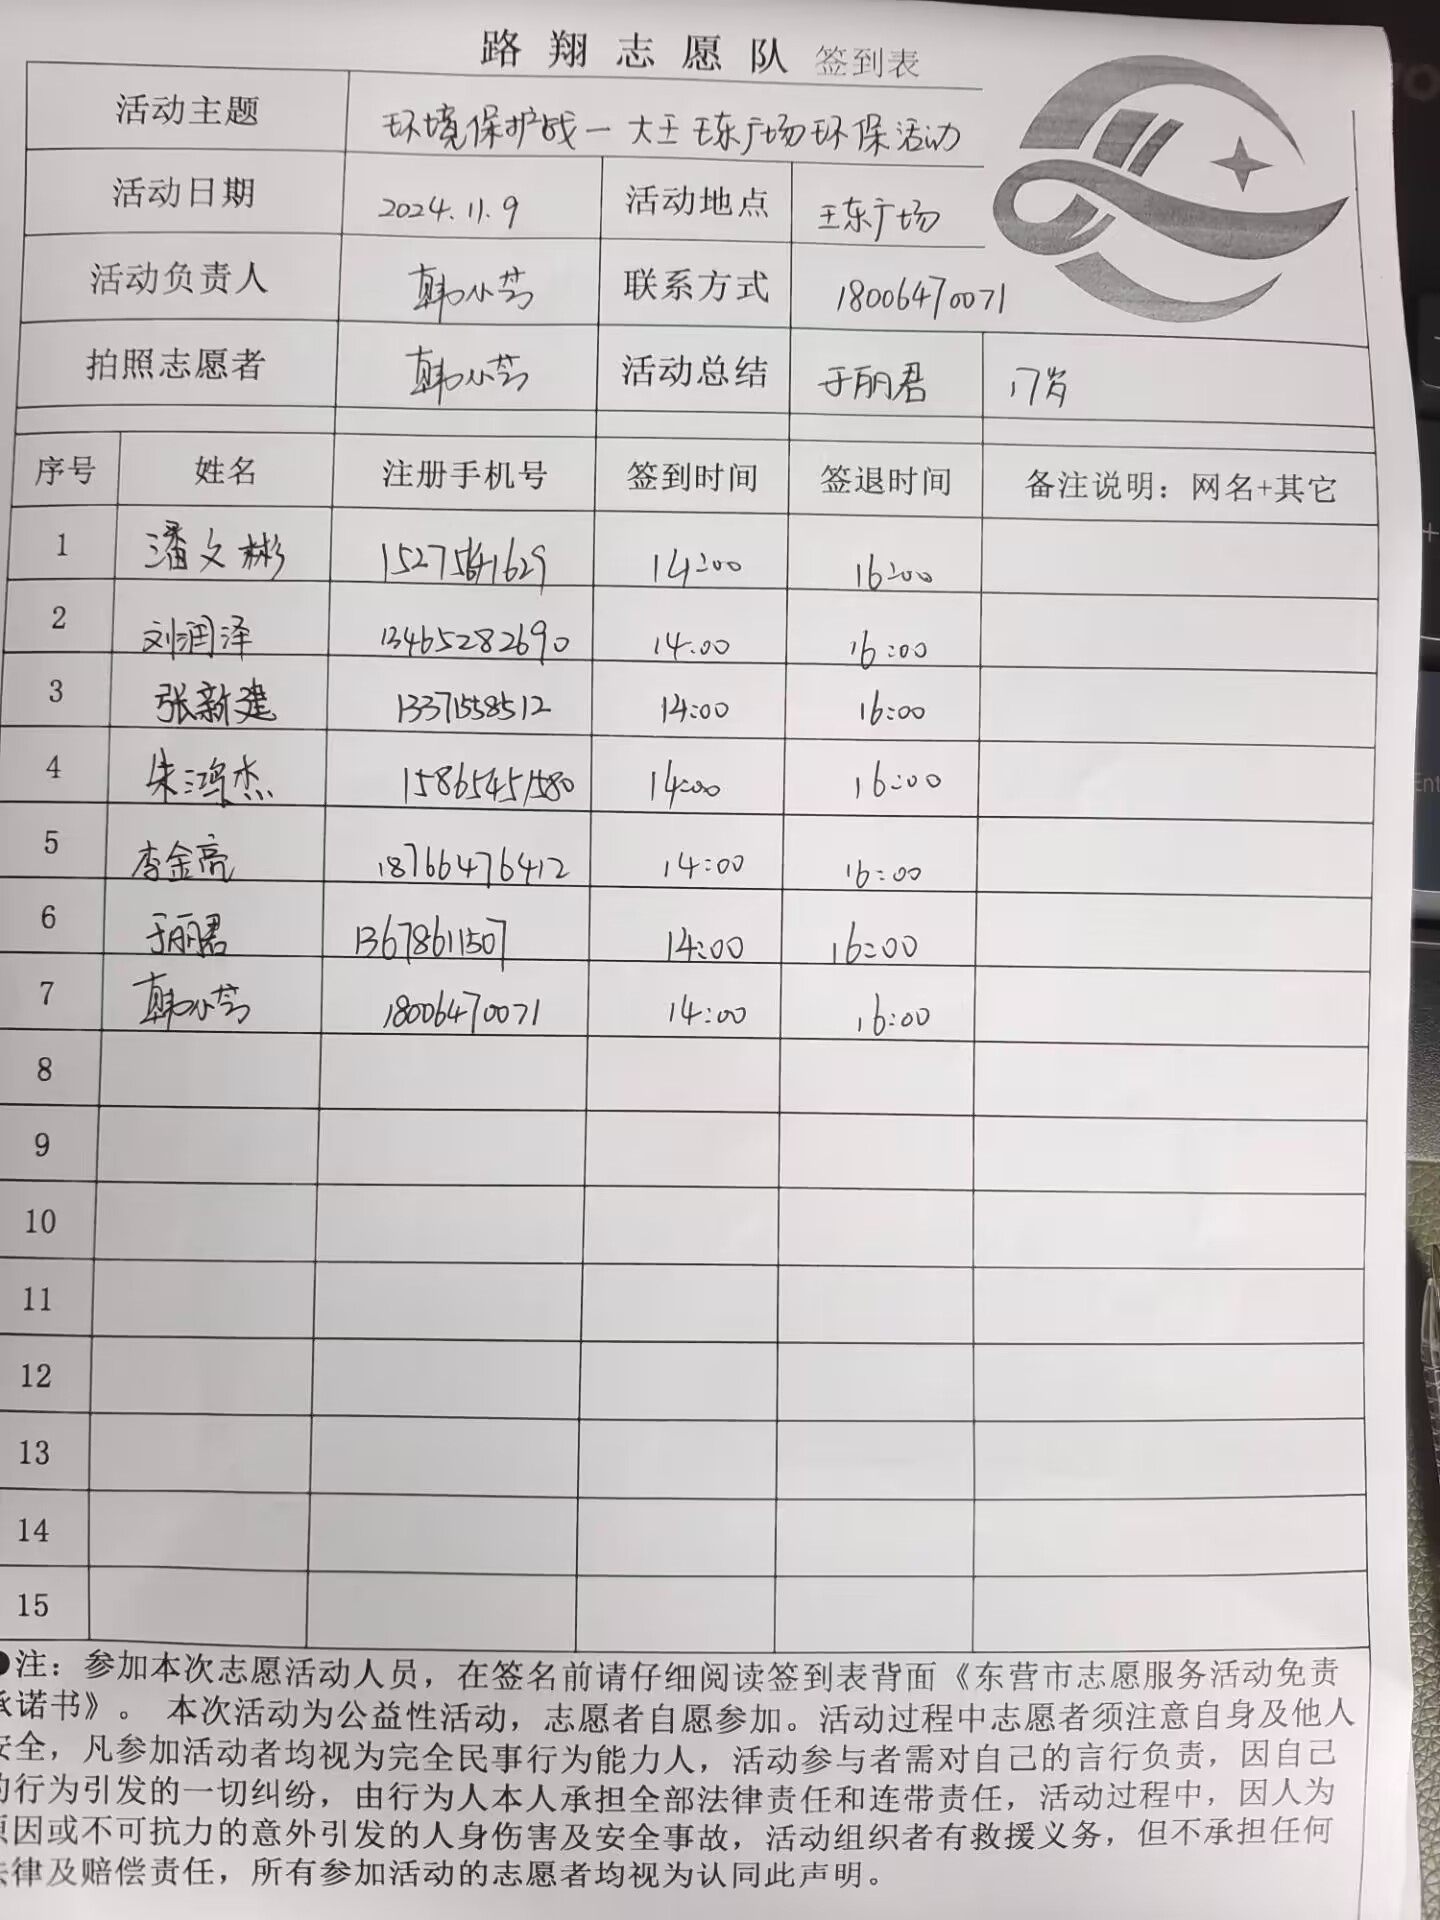 路翔志愿队 签到表
活动主题 环境保护战一大王王东广场环保活动
活动日期 2024.11.9 活动地点 王东广场
活动负责人 韩小芳 联系方式 18006470071
拍照志愿者 韩小芳 活动总结 于丽君 17岁
序号 姓名 注册手机号 签到时间 签退时间 备注说明：网名+其它
1 潘文彬 14:00 16:00
2 刘润泽 13465282690 14:00 16:00
3 张新建 13371558512 14:00 16:00
4 朱鸿杰 15865451580 14:00 16:00
5 李金亮 18766476412 14:00 16:00
6 于丽君 13678611507 14:00 16:00
7 韩小芳 18006470071 14:00 16:00
8
9
10
11
12
13
14
15
●注：参加本次志愿活动人员，在签名前请仔细阅读签到表背面《东营市志愿服务活动免责
承诺书》。 本次活动为公益性活动，志愿者自愿参加。活动过程中志愿者须注意自身及他人
安全，凡参加活动者均视为完全民事行为能力人，活动参与者需对自己的言行负责，因自己
的行为引发的一切纠纷，由行为人本人承担全部法律责任和连带责任，活动过程中，因人为
原因或不可抗力的意外引发的人身伤害及安全事故，活动组织者有救援义务，但不承担任何
法律及赔偿责任，所有参加活动的志愿者均视为认同此声明。